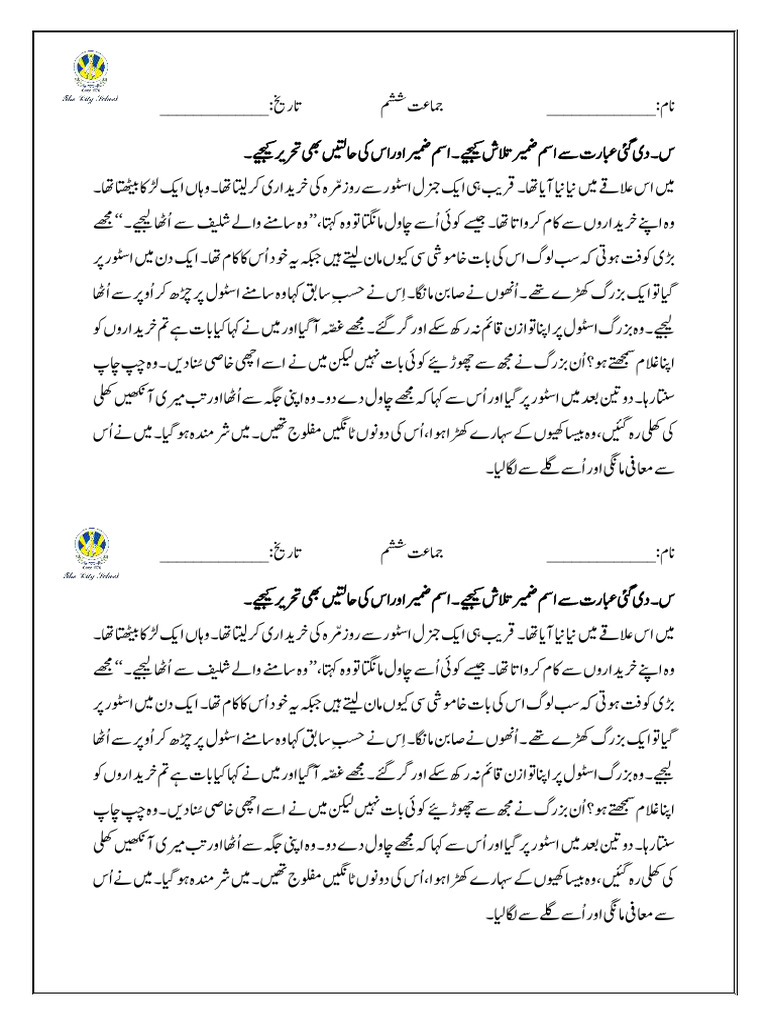 The City School
نام:______________ جماعت ششم تاریخ:______________
س۔ دی گئی عبارت سے اسم ضمیر تلاش کیجیے۔ اسم ضمیر اور اس کی حالتیں بھی تحریر کیجیے۔
میں اس علاقے میں نیا نیا آیا تھا۔ قریب ہی ایک جنرل اسٹور سے روز مرّہ کی خریداری کر لیتا تھا۔ وہاں ایک لڑکا بیٹھتا تھا۔
وہ اپنے خریداروں سے کام کرواتا تھا۔ جیسے کوئی اُسے چاول مانگتا تو وہ کہتا، ”وہ سامنے والے شلیف سے اُٹھا لیجیے۔“ مجھے
بڑی کوفت ہوتی کہ سب لوگ اس کی بات خاموشی سی کیوں مان لیتے ہیں جبکہ یہ خود اُس کا کام تھا۔ ایک دن میں اسٹور پر
گیا تو ایک بزرگ کھڑے تھے۔ اُنھوں نے صابن مانگا۔ اِس نے حسبِ سابق کہا وہ سامنے اسٹول پر چڑھ کر اُوپر سے اُٹھا
لیجیے۔ وہ بزرگ اسٹول پر اپنا توازن قائم نہ رکھ سکے اور گر گئے۔ مجھے غصّہ آ گیا اور میں نے کہا کیا بات ہے تم خریداروں کو
اپنا غلام سمجھتے ہو؟ اُن بزرگ نے مجھ سے چھوڑیئے کوئی بات نہیں لیکن میں نے اسے اچھی خاصی سُنا دیں۔ وہ چپ چاپ
سنتا رہا۔ دو تین بعد میں اسٹور پر گیا اور اُس سے کہا کہ مجھے چاول دے دو۔ وہ اپنی جگہ سے اُٹھا اور تب میری آنکھیں کھلی
کی کھلی رہ گئیں، وہ بیساکھیوں کے سہارے کھڑا ہوا، اُس کی دونوں ٹانگیں مفلوج تھیں۔ میں شرمندہ ہو گیا۔ میں نے اُس
سے معافی مانگی اور اُسے گلے سے لگا لیا۔
The City School
نام:______________ جماعت ششم تاریخ:______________
س۔ دی گئی عبارت سے اسم ضمیر تلاش کیجیے۔ اسم ضمیر اور اس کی حالتیں بھی تحریر کیجیے۔
میں اس علاقے میں نیا نیا آیا تھا۔ قریب ہی ایک جنرل اسٹور سے روز مرّہ کی خریداری کر لیتا تھا۔ وہاں ایک لڑکا بیٹھتا تھا۔
وہ اپنے خریداروں سے کام کرواتا تھا۔ جیسے کوئی اُسے چاول مانگتا تو وہ کہتا، ”وہ سامنے والے شلیف سے اُٹھا لیجیے۔“ مجھے
بڑی کوفت ہوتی کہ سب لوگ اس کی بات خاموشی سی کیوں مان لیتے ہیں جبکہ یہ خود اُس کا کام تھا۔ ایک دن میں اسٹور پر
گیا تو ایک بزرگ کھڑے تھے۔ اُنھوں نے صابن مانگا۔ اِس نے حسبِ سابق کہا وہ سامنے اسٹول پر چڑھ کر اُوپر سے اُٹھا
لیجیے۔ وہ بزرگ اسٹول پر اپنا توازن قائم نہ رکھ سکے اور گر گئے۔ مجھے غصّہ آ گیا اور میں نے کہا کیا بات ہے تم خریداروں کو
اپنا غلام سمجھتے ہو؟ اُن بزرگ نے مجھ سے چھوڑیئے کوئی بات نہیں لیکن میں نے اسے اچھی خاصی سُنا دیں۔ وہ چپ چاپ
سنتا رہا۔ دو تین بعد میں اسٹور پر گیا اور اُس سے کہا کہ مجھے چاول دے دو۔ وہ اپنی جگہ سے اُٹھا اور تب میری آنکھیں کھلی
کی کھلی رہ گئیں، وہ بیساکھیوں کے سہارے کھڑا ہوا، اُس کی دونوں ٹانگیں مفلوج تھیں۔ میں شرمندہ ہو گیا۔ میں نے اُس
سے معافی مانگی اور اُسے گلے سے لگا لیا۔